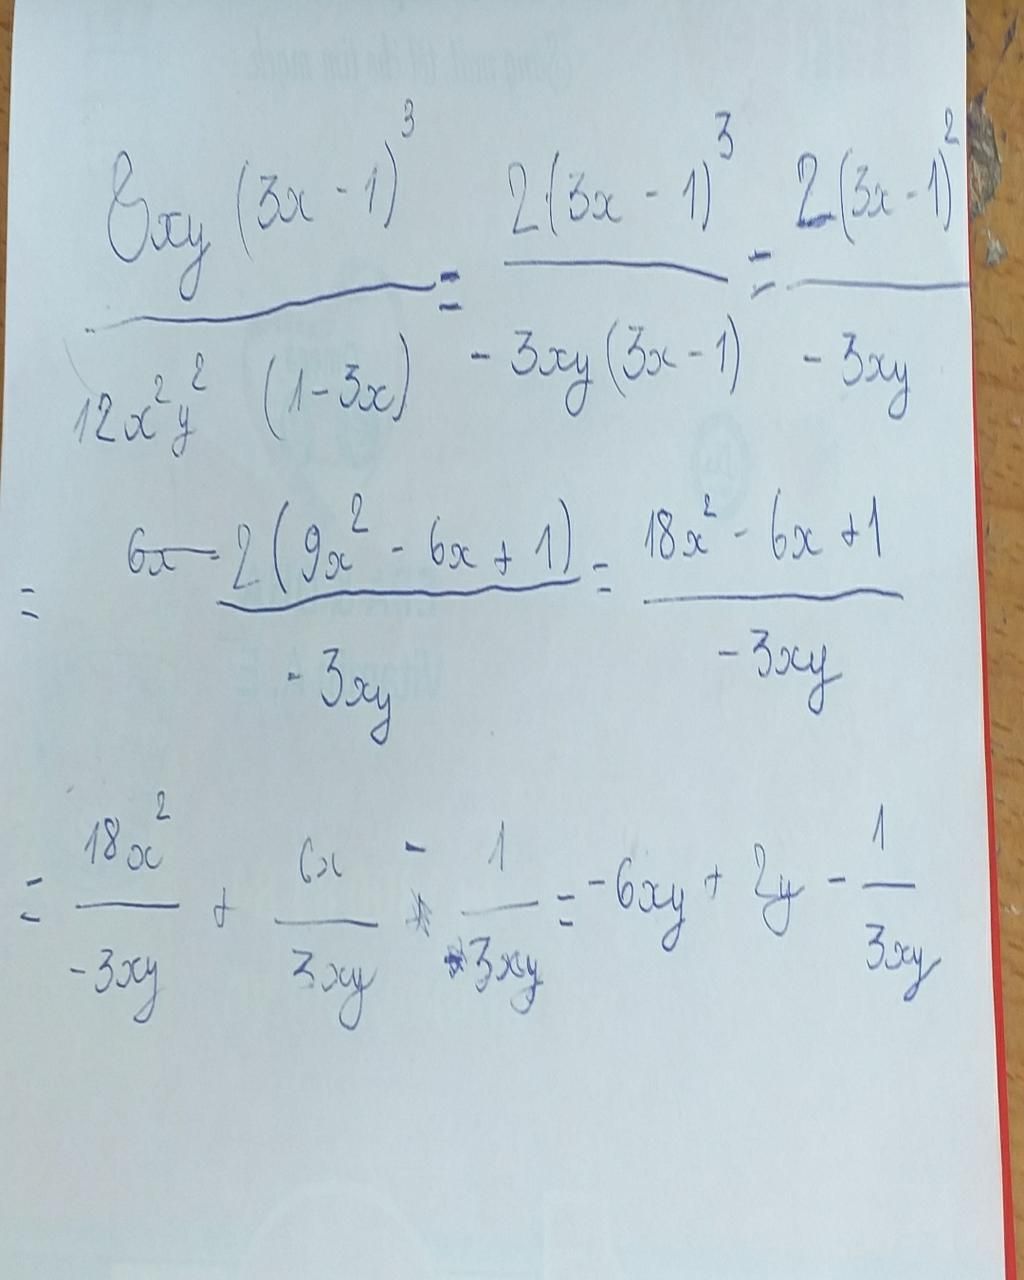 8xy (3x - 1)³ / 12x²y² (1 - 3x) = 2(3x - 1)³ / - 3xy (3x - 1) = 2(3x - 1)² / - 3xy
= 2(9x² - 6x + 1) / - 3xy = 18x² - 6x + 1 / - 3xy
= 18x² / - 3xy + 6x / 3xy - 1 / 3xy = - 6xy + 2y - 1 / 3xy